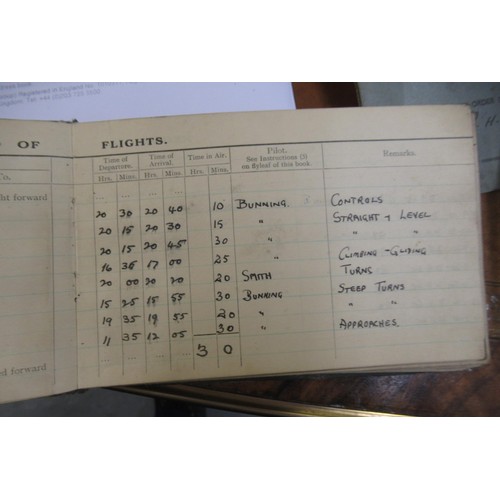 Registered in England No
Tel: +44
D OF FLIGHTS.
To.
Time of Departure. Time of Arrival. Time in Air. Pilot. See Instructions (5) on flyleaf of this book. Remarks.
Hrs. Mins. Hrs. Mins. Hrs. Mins.
ght forward
20 30 20 40 10 BUNNING. CONTROLS
20 15 20 30 15 " STRAIGHT + LEVEL
20 15 20 45 30 " " "
16 35 17 00 25 " CLIMBING - GLIDING
20 00 20 20 20 SMITH TURNS
15 25 15 55 30 BUNNING STEEP TURNS
19 35 19 55 20 " " "
11 35 12 05 30 " APPROACHES.
3 0
ed forward